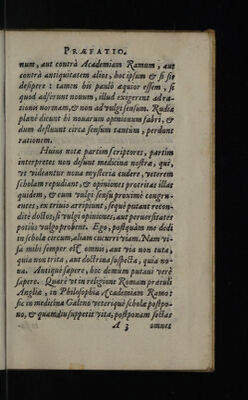 PRÆFATIO.
num, aut contrà Academiam Ramum, aut
contrà antiquitatem alios, hoc ipsum & si sit
desipere: tamen his paulò æquior essem, si
quod adferunt nouum, illud exigerent ad ra-
tionis normam, & non ad vulgi sensum. Rudia
planè dicunt hi nouarum opinionum fabri, &
dum defluunt circa sensum tantùm, perdunt
rationem.
Huius notæ partim scriptores, partim
interpretes non desunt medicinæ nostræ, qui,
vt videantur noua mysteria cudere, veterem
scholam repudiant, & opiniones proteritas illas
quidem, & cum vulgi sensu proximè congru-
entes, ex triuio arripiunt, seque putant recon-
ditè doctos, si vulgi opiniones, aut peruersitates
potiùs vulgo probent. Ego, postquàm me dedi
in schola circum, aliam cucurri viam. Nam vi-
sa mihi semper est omnis, aut via non tuta,
quia non trita, aut doctrina suspecta, quia no-
ua. Antiquè sapere, hoc demum putaui verè
sapere. Quare vt in religione Romam prætuli
Angliæ, in Philosophia Academiam Ramo:
sic in medicina Galeno veterique scholæ postpo-
no, & quamdiu suppetit vita, postponam sectas
A 3 omnes